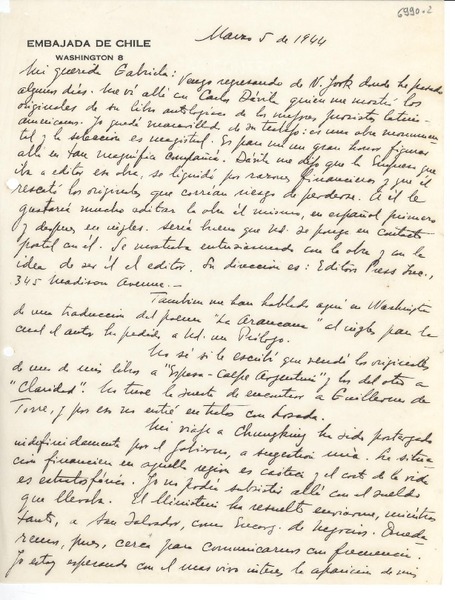 6990.2
EMBAJADA DE CHILE
WASHINGTON 8
Marzo 5 de 1944
Mi querida Gabriela: Vengo regresando de N. York donde he pasado
algunos días. Me ví allí con Carlos Dávila quien me mostró los
originales de su libro antológico de los mejores prosistas latino-
americanos. Yo quedé maravillado de su trabajo: es una obra monumen-
tal y la selección es magistral. Es para mí un gran honor figurar
allí en tan magnífica compañía. Dávila me dijo que la Empresa que
iba a editar su obra, se liquidó por razones financieras y que él
rescató los originales que corrían riesgo de perderse. A él le
gustaría mucho editar la obra él mismo, en español primero
y despues en inglés. Sería bueno que Ud. se ponga en contacto
postal con él. Se mostraba entusiasmado con la obra y con la
idea de ser él el editor. Su direccion es: Editors Press Inc.,
345 Madison Avenue.—
Tambien me han hablado aquí en Washington
de una traduccion del poema "La Araucana" al inglés para la
cual el autor ha pedido a Ud. un Prólogo.
No sé si le escribí que vendí los originales
de uno de mis libros a "Espasa-Calpe Argentina" y los del otro a
"Claridad". No tuve la suerte de encontrar a Guillermo de
Torre, y por eso no entré en tratos con Losada.
Mi viaje a Chungking ha sido postergado
indefinidamente por el Gobierno, a sugestion mía. La situa-
ción financiera en aquella region es caótica y el costo de la vida
es estratosférico. Yo no podría subsistir allí con el sueldo
que llevaba. El Ministerio ha resuelto enviarme, mientras
tanto, a San Salvador, como Encarg. de Negocios. Queda
remos, pues, cerca para comunicarnos con frecuencia.
Yo estoy esperando con el mas vivo interés la aparicion de mis